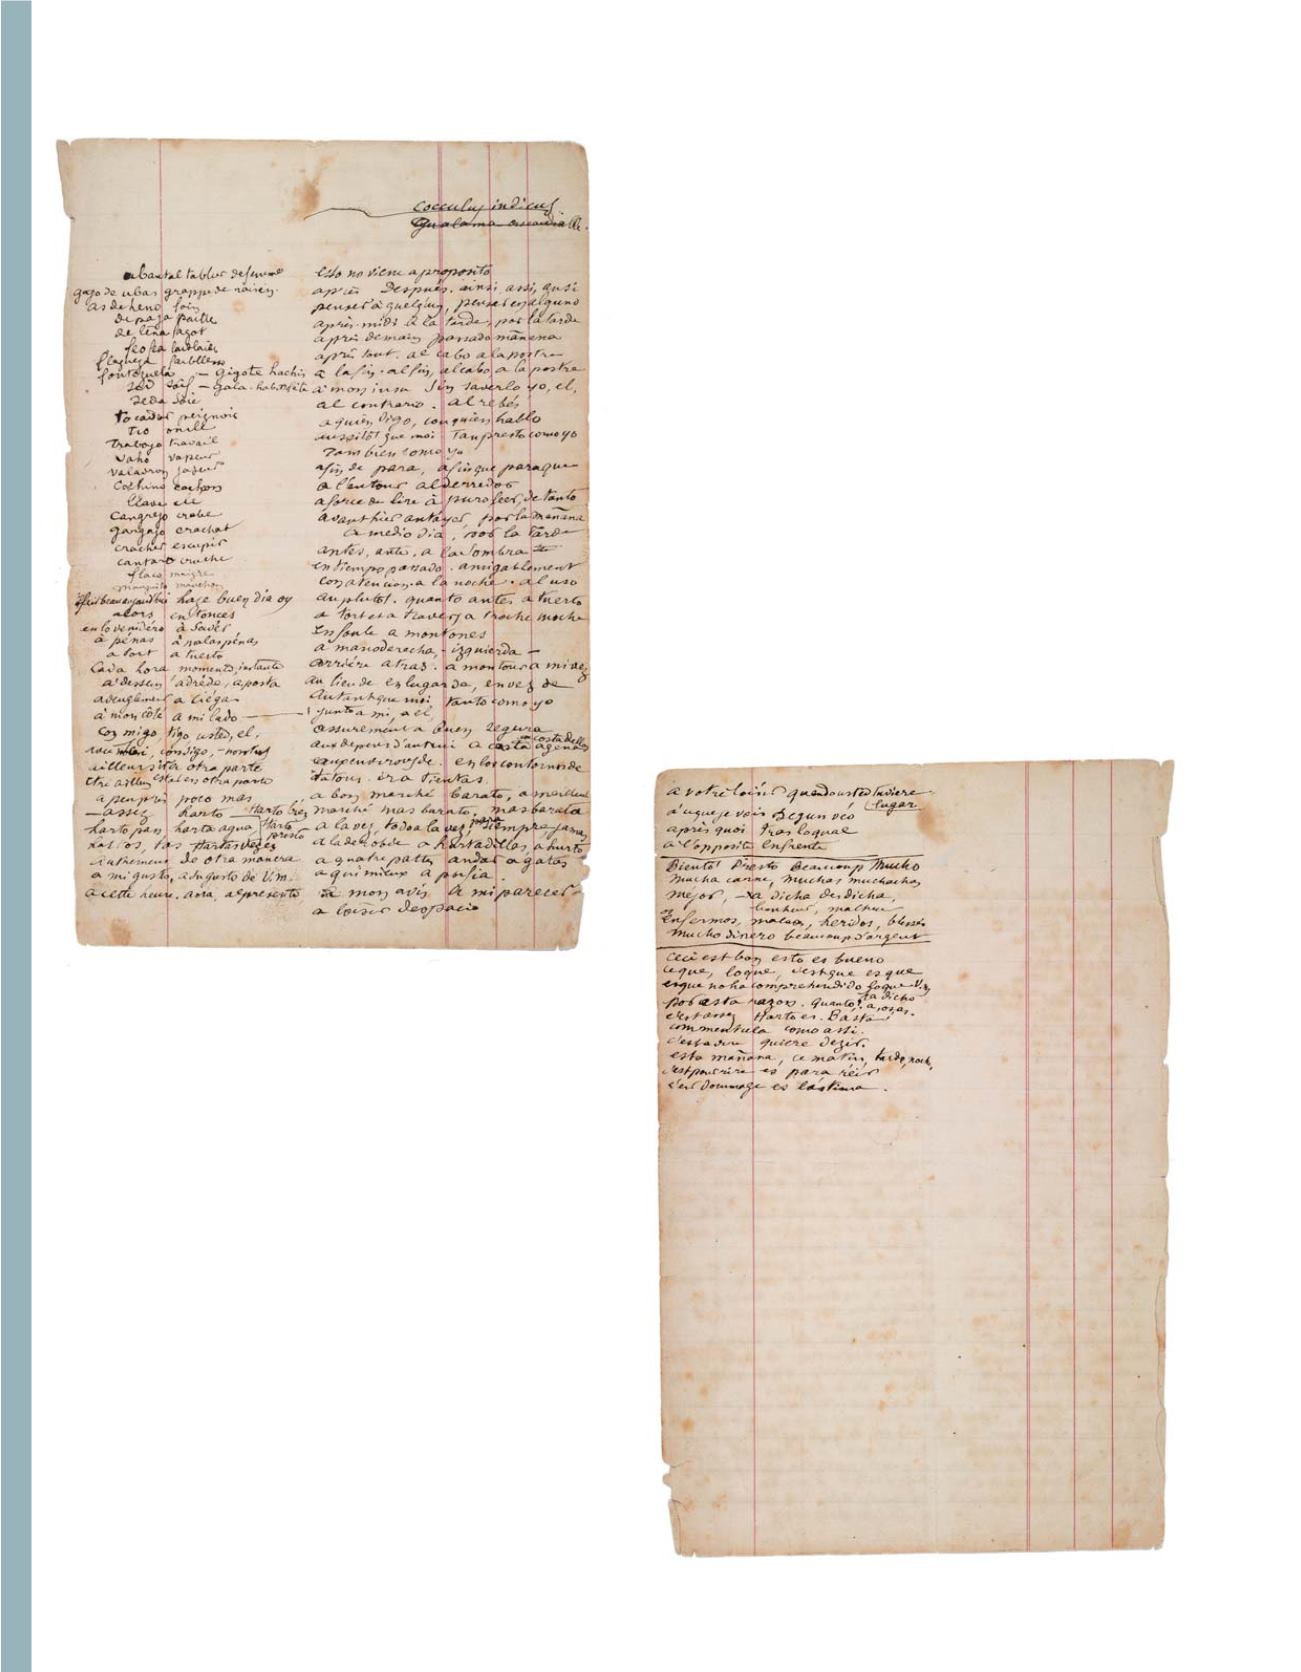 cocculus indicus
gajo de ubas grappe de raisin.
as de heno foin
de paja paille
de leña fagot
flaqueza faiblesse
fontezuela — Gigote hachis
sed soif — Gala. habit fête
seda soie
tocador peignoir
tio oncle
trabajo travail
vaho vapeur
valadron jaseur
Cochino cochon
llave clé
Cangrejo crabe
gargajo crachat
cracher escupir
cantaro cruche
flaco maigre
manguito manchon
haze buen dia oy
alors entonces
en lo venidéro à savér
à pénas à palas pénas
a tort a tuerto
Cada hora momento, instante
à dessein adréde, aposta
aveuglement a ciéga
à mon côté a mi lado
con migo, tigo, usted, el,
consigo,
ailleurs otra parte
estar en otra parte
a peu près poco mas
— assez harto Harto bien
harto pan, harta agua Harto presto
hartos, tas Hartas vezes
autrement de otra manera
a mi gusto, a su gusto de V.m.
a cette heure. aora, al presente
esto no viene a proposito
après Después. ainsi assi, ausi
penser à quelqu'un, pensar en alguno
après-midi à la tarde, por la tarde
après demain passado mañana
après tout. al cabo a la postre
a la fin. al fin, al cabo a la postre
à mon insu Sin saverlo yo, el,
al contrario. al rebés
a quien digo, con quien hablo
aussitôt que moi Tan presto como yo
Tambien como yo
afin de para, afinque paraque
a l'entour al derredor
a force de lire à puro leer, de tanto
avanthier antayer, por la mañana
a medio dia, por la tarde
antes, ante, a la sombra
en tiempo passado. amigablement
con atencion. a la noche. al uso
au plutôt. quanto antes a tuerto
a tort et a travers a troche moche
En foule a montones
a mano derecha, — izquierda —
arriére atras. a mon tour a mi vez
au lieu de en lugar de, en vez de
autant que moi tanto como yo
junto a mi, a el,
assurement a buen segura
aux depens d'autrui a costa agena
en los contornos de
a tatons. ir a tientas.
a bon marché barato, a meilleur
marché mas barato, mas barata
a la vez, toda la vez, para siempre jamas
a la derobée a hurtadillas, a hurto
a quatre pattes andar a gatas
a qui mieux a porfia.
à mon avis A mi parecer
a loisir despacio
a votre loisir quando usted tubiere lugar
à ce que je vois Segun veó
après quoi tras loqual
a l'opposite Enfrente
Bientot Presto Beaucoup Mucho
mucha carne, muchas muchachas
mejor, — la dicha desdicha,
bonheur, malheur
Enfermos, malos, heridos, blessés
Mucho dinero beaucoup d'argent
ceci est bon esto es bueno
ce que, loque, c'est que es que
es que no ha comprehendido loque V.m. ha dicho
por esta razon. Quanto
c'est assez Harto es. Basta
comment cela como assi.
c'est a dire quiere dezir.
esta mañana, ce matin, tarde, noche,
c'est pour rire es para réir
c'est dommage es lástima.